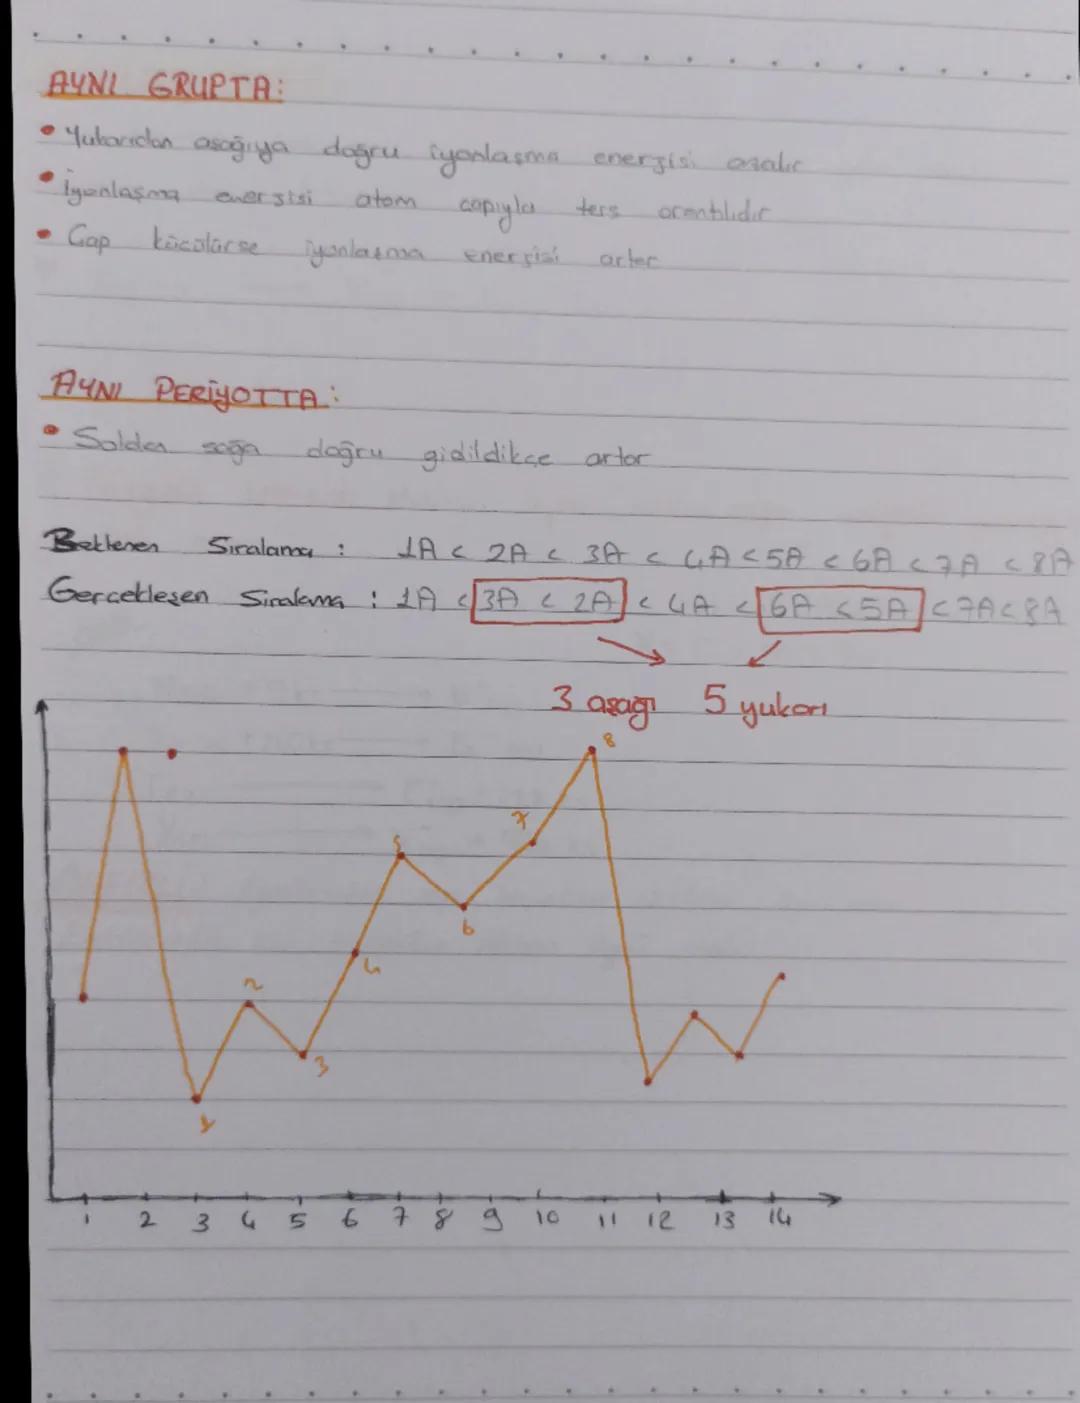 AYNI GRUPTA:
• Yukarıdan aşağıya doğru iyonlaşma enerjisi azalır
• İyonlaşma enerjisi atom çapıyla ters orantılıdır
• Çap küçülürse iyonlaşma enerjisi artar
AYNI PERİYOTTA:
• Soldan sağa doğru gidildikçe artar
Beklenen Sıralama : 1A < 2A < 3A < 4A < 5A < 6A < 7A < 8A
Gerçekleşen Sıralama : 1A < 3A < 2A < 4A < 6A < 5A < 7A < 8A
3 aşağı 5 yukarı
8
7
5
6
4
2
3
1
1 2 3 4 5 6 7 8 9 10 11 12 13 14